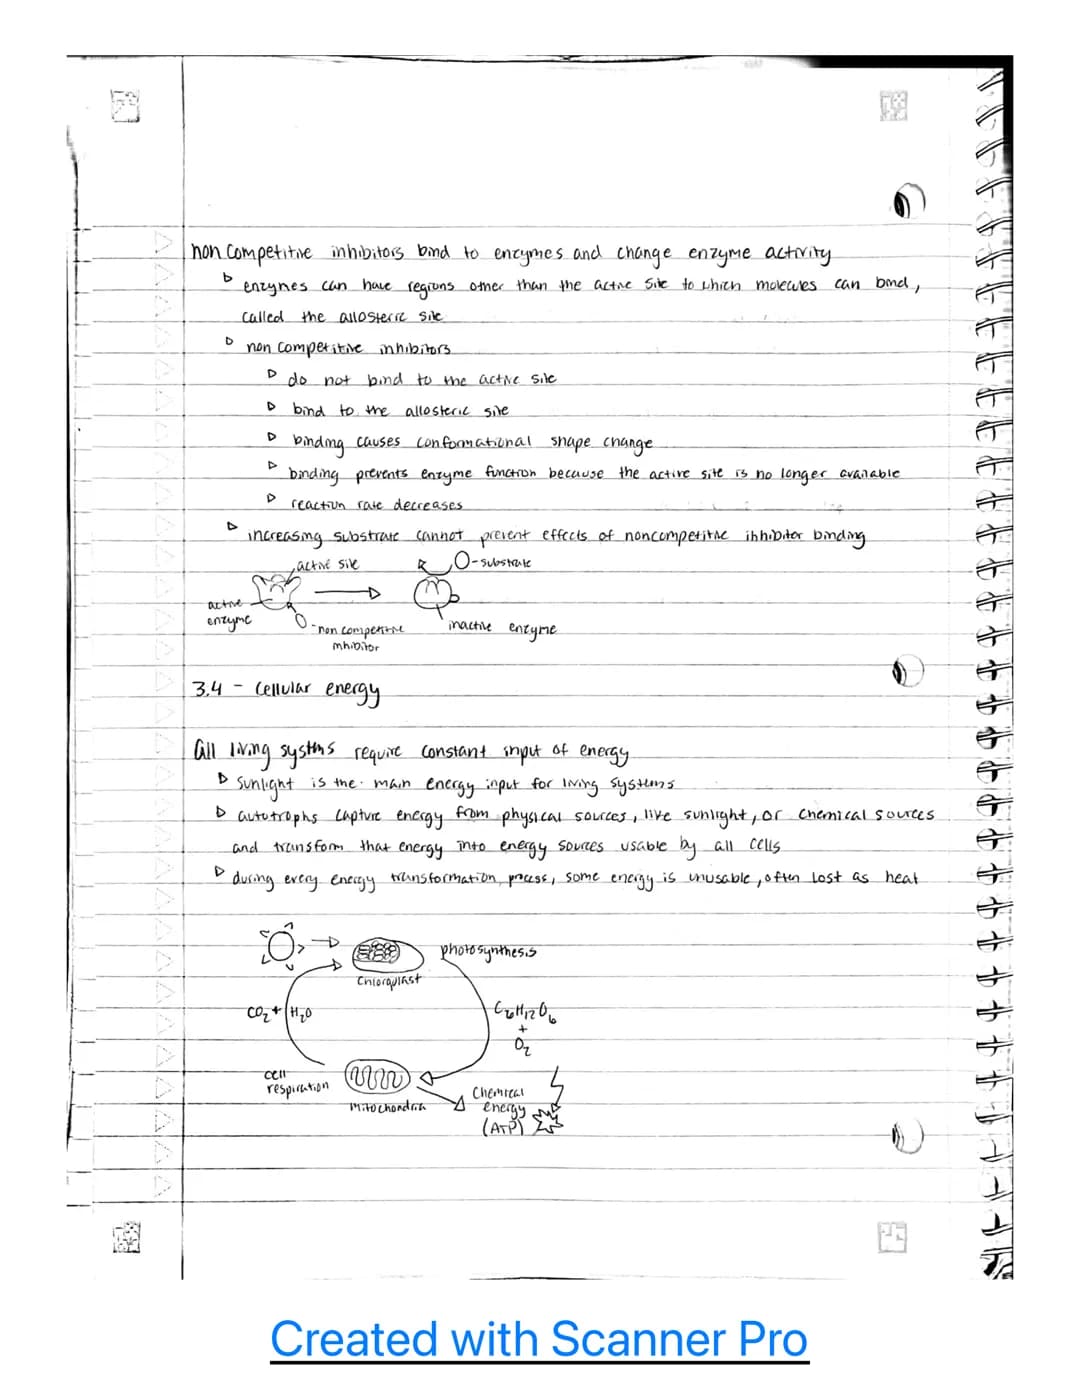 non competitive inhibitors bind to enzymes and change enzyme activity
▷ enzymes can have regions other than the active site to which molecules can bind,
called the allosteric site
▷ non competitive inhibitors
▷ do not bind to the active site
▷ bind to the allosteric site
▷ binding causes conformational shape change
▷ binding prevents enzyme function because the active site is no longer available
▷ reaction rate decreases
▷ increasing substrate cannot prevent effects of noncompetitive inhibitor binding
active site
O-substrate
active
enzyme
- non competitive
inhibitor
inactive enzyme
3.4 - Cellular energy
All living systems require constant input of energy
▷ sunlight is the main energy input for living systems
▷ autotrophs capture energy from physical sources, like sunlight, or chemical sources
and transform that energy into energy sources usable by all cells
▷ during every energy transformation process, some energy is unusable, often lost as heat
photosynthesis
Chloroplast
CO₂ + H₂O
C₆H₁₂O₆
+
O₂
cell
respiration
Mitochondria
Chemical
energy
(ATP)
Created with Scanner Pro